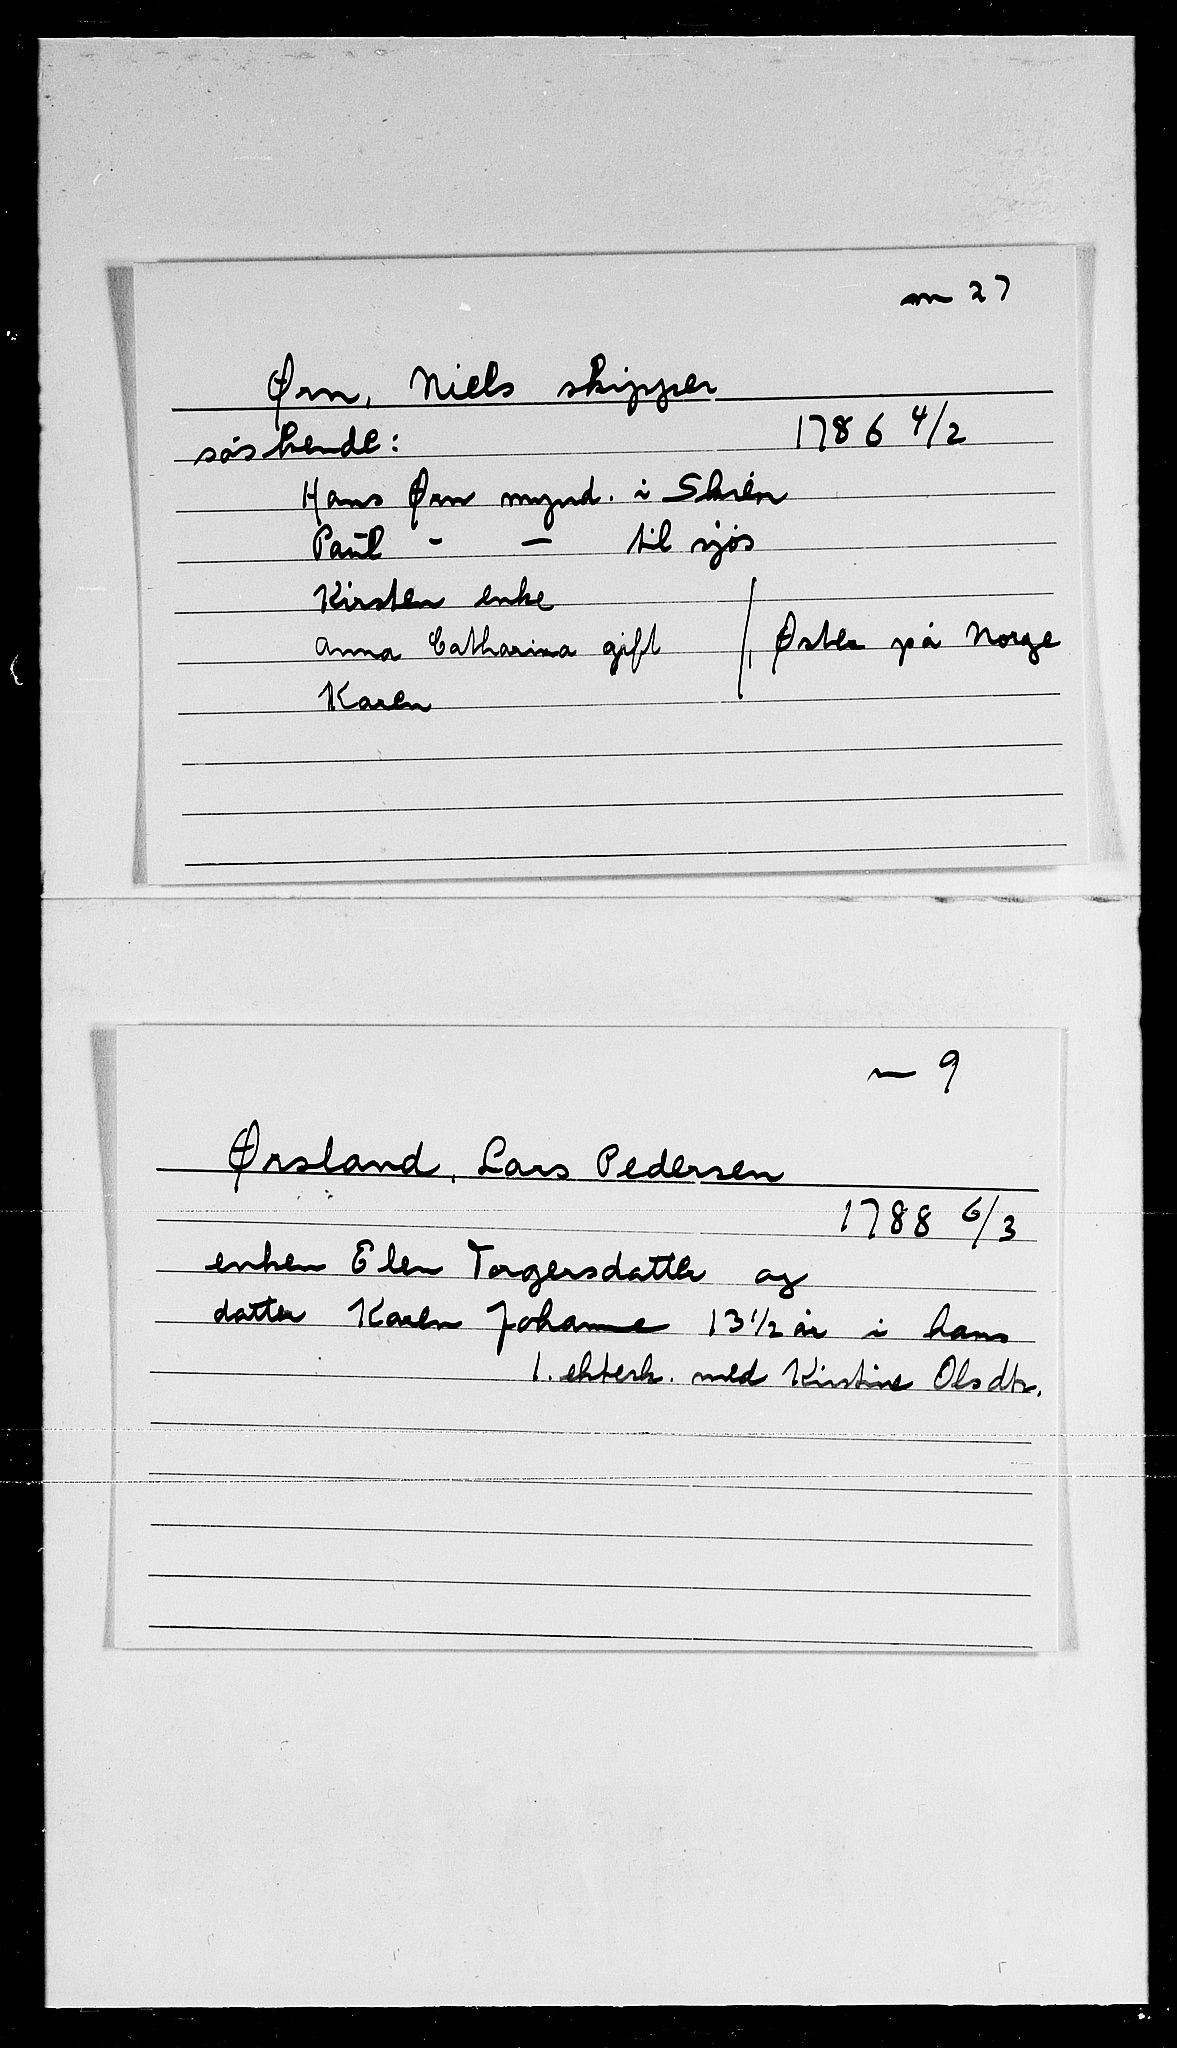 m 27
Ørn, Niels skipper
søskende: 1786 4/2
Hans Ørn mynd. i Skien
Paul - — til sjøs
Kirsten enke
Anna Catharina gift / Øster på Norge
Karen
m 9
Ørsland, Lars Pedersen
1788 6/3
enken Elen Torgersdatter og
datter Karen Johanne 13 1/2 år i hans
1. ektesk. med Kirstine Olsdtr.